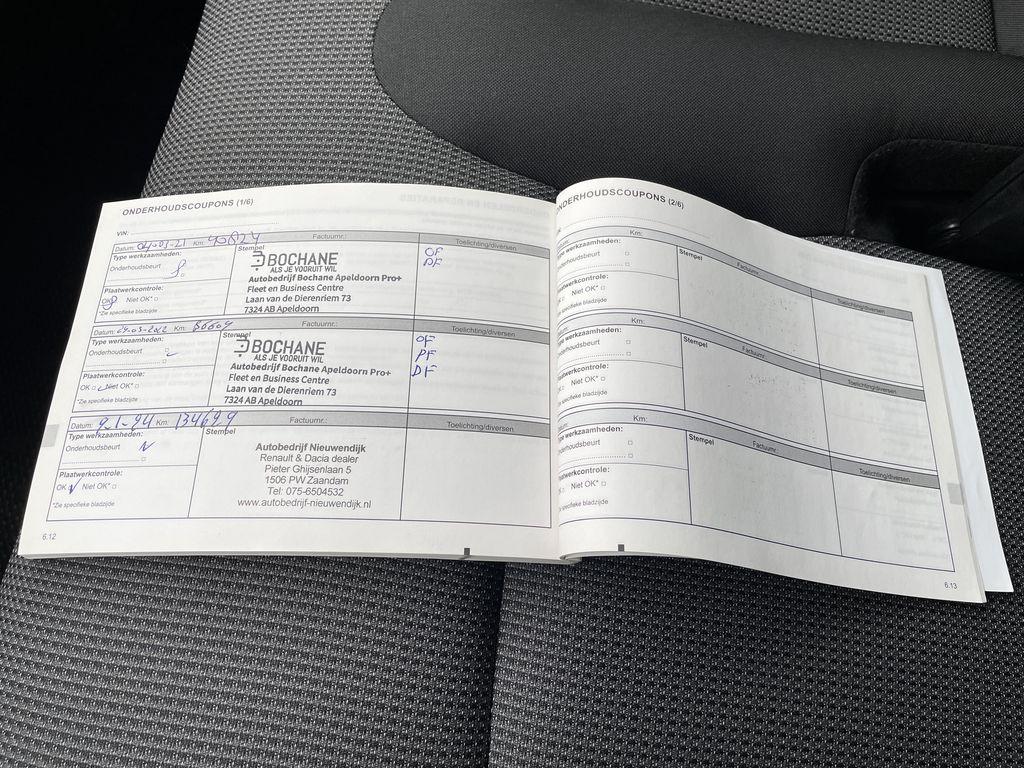 ONDERHOUDSCOUPONS (1/6)
VIN:
Datum: 04-03-21 Km: Factuurnr.: Toelichting/diversen
Type werkzaamheden:
Onderhoudsbeurt
Stempel
BOCHANE
ALS JE VOORUIT WIL
Autobedrijf Bochane Apeldoorn Pro+
Fleet en Business Centre
Laan van de Dierenriem 73
7324 AB Apeldoorn
OF
PF
Plaatwerkcontrole:
OK Niet OK*
*Zie specifieke bladzijde
Datum: Km: Factuurnr.: Toelichting/diversen
Type werkzaamheden:
Onderhoudsbeurt
Stempel
BOCHANE
ALS JE VOORUIT WIL
Autobedrijf Bochane Apeldoorn Pro+
Fleet en Business Centre
Laan van de Dierenriem 73
7324 AB Apeldoorn
OF
PF
DF
Plaatwerkcontrole:
OK Niet OK*
*Zie specifieke bladzijde
Datum: Km: 134699 Factuurnr.: Toelichting/diversen
Type werkzaamheden:
Onderhoudsbeurt
Stempel
Autobedrijf Nieuwendijk
Renault & Dacia dealer
Pieter Ghijsenlaan 5
1506 PW Zaandam
Tel: 075-6504532
www.autobedrijf-nieuwendijk.nl
Plaatwerkcontrole:
OK Niet OK*
*Zie specifieke bladzijde
6.12
ONDERHOUDSCOUPONS (2/6)
Km: Factuurnr.: Toelichting/diversen
Type werkzaamheden:
Onderhoudsbeurt
Stempel
Plaatwerkcontrole:
OK Niet OK*
*Zie specifieke bladzijde
Km: Factuurnr.: Toelichting/diversen
Type werkzaamheden:
Onderhoudsbeurt
Stempel
Plaatwerkcontrole:
OK Niet OK*
*Zie specifieke bladzijde
Km: Factuurnr.: Toelichting/diversen
Type werkzaamheden:
Onderhoudsbeurt
Stempel
Plaatwerkcontrole:
OK Niet OK*
*Zie specifieke bladzijde
6.13